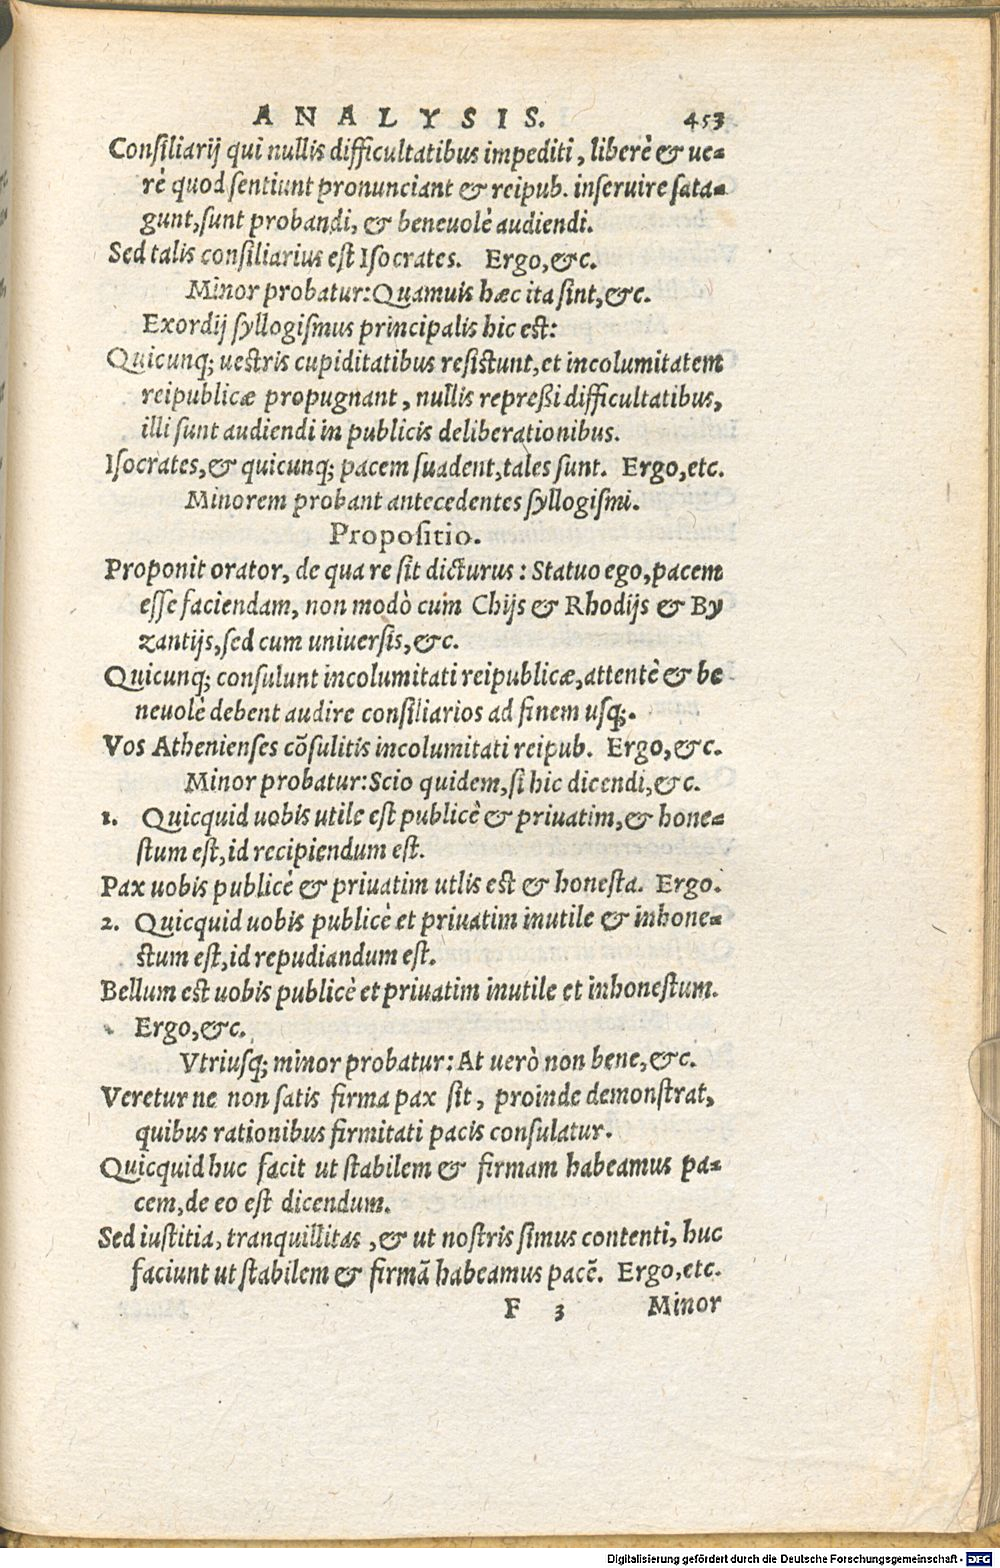 ANALYSIS. 453
Consiliarij qui nullis difficultatibus impediti, liberè & ue-
rè quod sentiunt pronunciant & reipub. inseruire sata-
gunt, sunt probandi, & beneuolè audiendi.
Sed talis consiliarius est Isocrates. Ergo, &c.
Minor probatur: Quamuis hæc ita sint, &c.
Exordij syllogismus principalis hic est:
Quicunq; uestris cupiditatibus resistunt, et incolumitatem
reipublicæ propugnant, nullis repreßi difficultatibus,
illi sunt audiendi in publicis deliberationibus.
Isocrates, & quicunq; pacem suadent, tales sunt. Ergo, etc.
Minorem probant antecedentes syllogismi.
Propositio.
Proponit orator, de qua re sit dicturus: Statuo ego, pacem
esse faciendam, non modò cum Chijs & Rhodijs & By
zantijs, sed cum uniuersis, &c.
Quicunq; consulunt incolumitati reipublicæ, attentè & be
neuolè debent audire consiliarios ad finem usq;.
Vos Athenienses cõsulitis incolumitati reipub. Ergo, &c.
Minor probatur: Scio quidem, si hic dicendi, &c.
1. Quicquid uobis utile est publicè & priuatim, & hone-
stum est, id recipiendum est.
Pax uobis publicè & priuatim utlis est & honesta. Ergo.
2. Quicquid uobis publicè et priuatim inutile & inhone-
stum est, id repudiandum est.
Bellum est uobis publicè et priuatim inutile et inhonestum.
Ergo, &c.
Vtriusq; minor probatur: At uerò non bene, &c.
Veretur ne non satis firma pax sit, proinde demonstrat,
quibus rationibus firmitati pacis consulatur.
Quicquid huc facit ut stabilem & firmam habeamus pa-
cem, de eo est dicendum.
Sed iustitia, tranquillitas, & ut nostris simus contenti, huc
faciunt ut stabilem & firmã habeamus pacẽ. Ergo, etc.
F 3 Minor
Digitalisierung gefördert durch die Deutsche Forschungsgemeinschaft - DFG